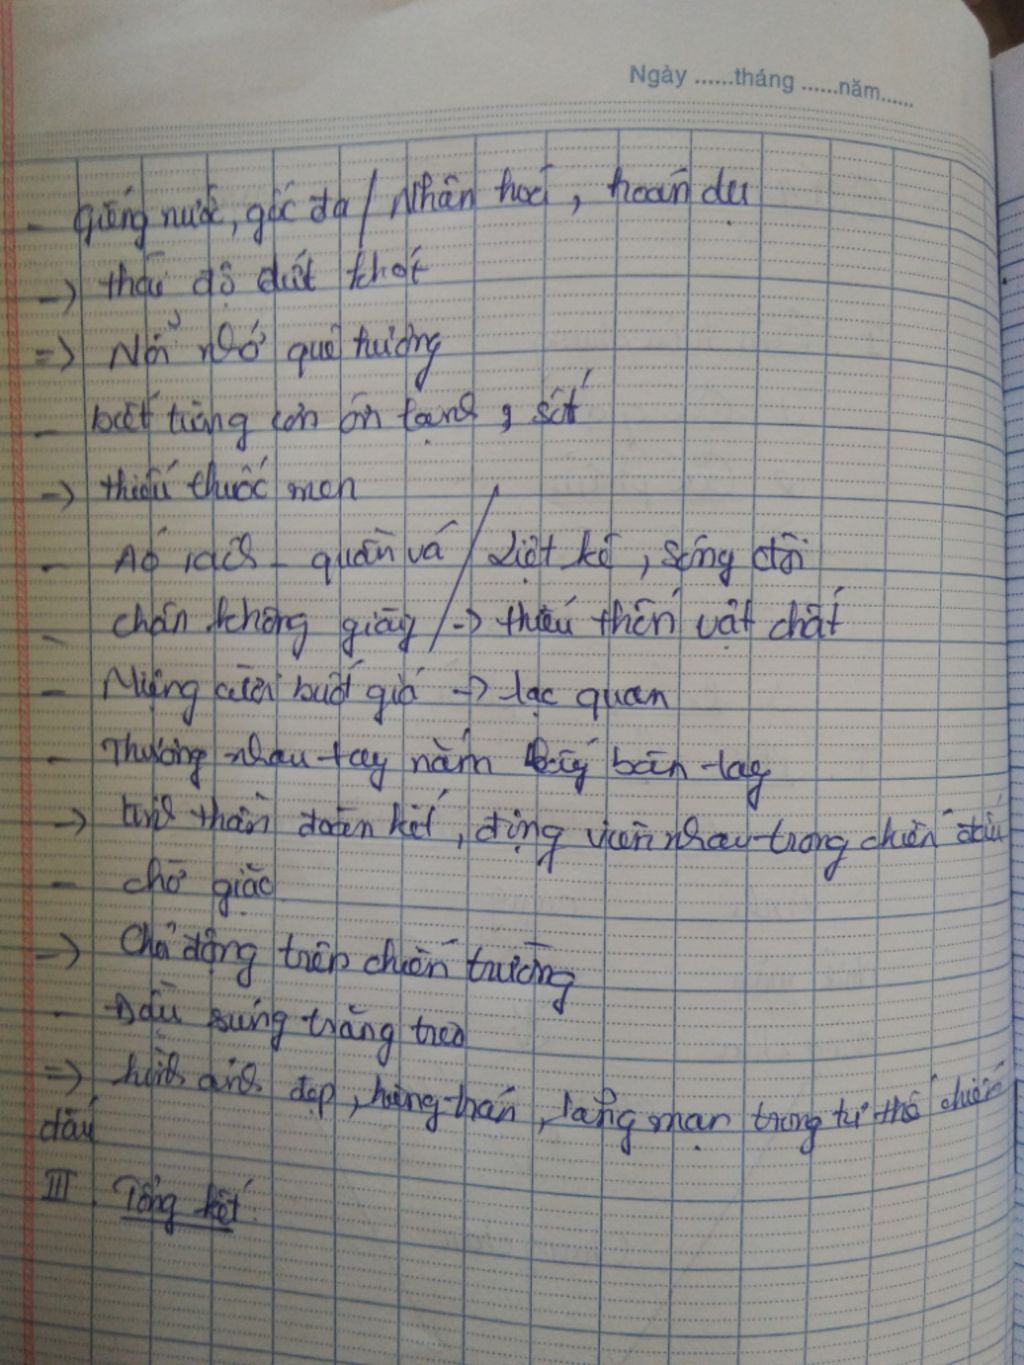 Ngày ......tháng ......năm......
- Giếng nước, gốc đa / Nhân hoá, hoán dụ
-> thái độ dứt khoát
=> Nỗi nhớ quê hương
- biết từng cơn ớn lạnh, sốt
-> thiếu thuốc men
- Áo rách - quần vá / Liệt kê, sóng đôi
- chân không giày / -> thiếu thốn vật chất
- Miệng cười buốt giá -> lạc quan
- Thương nhau tay nắm lấy bàn tay
-> tinh thần đoàn kết, động viên nhau trong chiến đấu
- chờ giặc
-> Chủ động trên chiến trường
- Đầu súng trăng treo
=> hình ảnh đẹp, hùng tráng, lãng mạn trong tư thế chiến
đấu
III. Tổng kết.